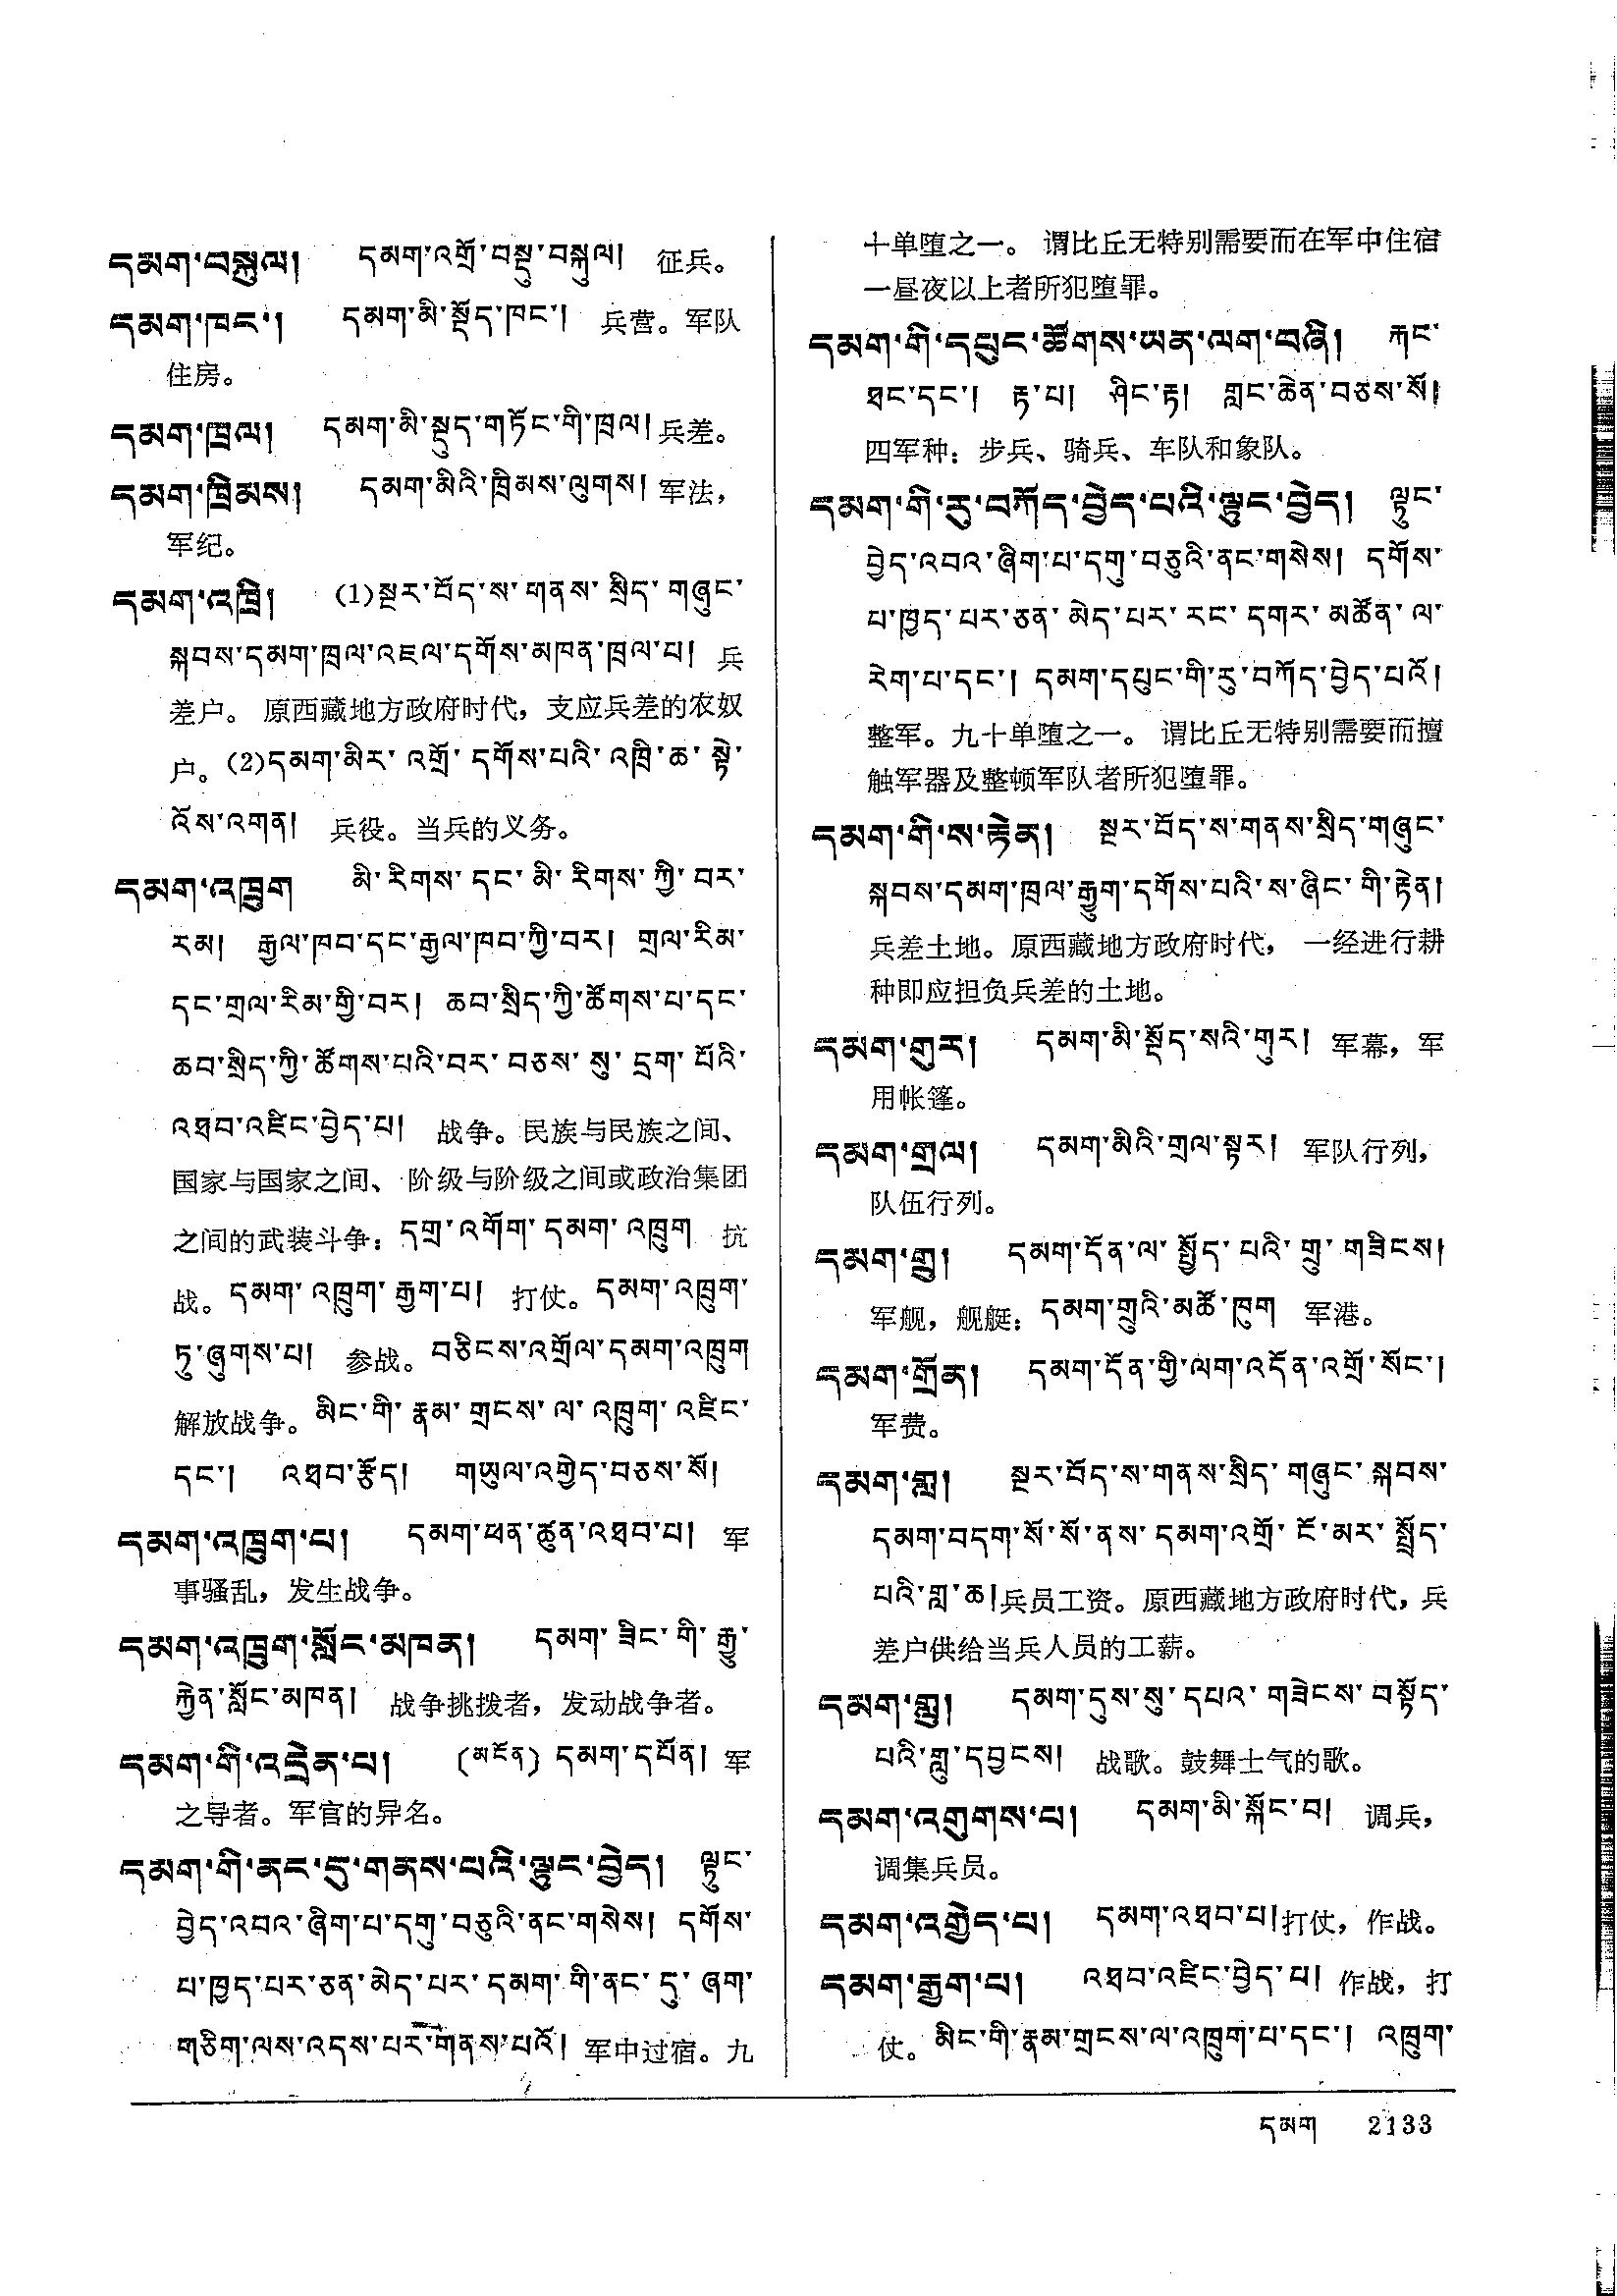 དམག་བསྐུལ། དམག་འགྲོ་བསྡུ་བསྐུལ། 征兵。
དམག་ཁང་། དམག་མི་སྡོད་ཁང་། 兵营。军队
住房。
དམག་ཁྲལ། དམག་མི་སྡུད་གཏོང་གི་ཁྲལ། 兵差。
དམག་ཁྲིམས། དམག་མིའི་ཁྲིམས་ལུགས། 军法，
军纪。
དམག་འཁྲི། (1)སྔར་བོད་ས་གནས་སྲིད་གཞུང་
སྐབས་དམག་ཁྲལ་འཇལ་དགོས་མཁན་ཁྲལ་པ། 兵
差户。原西藏地方政府时代，支应兵差的农奴
户。(2)དམག་མིར་འགྲོ་དགོས་པའི་འཁྲི་ཆ་སྟེ་
འོས་འགན། 兵役。当兵的义务。
དམག་འཁྲུག མི་རིགས་དང་མི་རིགས་ཀྱི་བར་
རམ། རྒྱལ་ཁབ་དང་རྒྱལ་ཁབ་ཀྱི་བར། གྲལ་རིམ་
དང་གྲལ་རིམ་གྱི་བར། ཆབ་སྲིད་ཀྱི་ཚོགས་པ་དང་
ཆབ་སྲིད་ཀྱི་ཚོགས་པའི་བར་བཅས་སུ་དྲག་པོའི་
འཐབ་འཛིང་བྱེད་པ། 战争。民族与民族之间、
国家与国家之间、阶级与阶级之间或政治集团
之间的武装斗争：དགྲ་འགོག་དམག་འཁྲུག 抗
战。དམག་འཁྲུག་རྒྱག་པ། 打仗。དམག་འཁྲུག་
ཏུ་ཞུགས་པ། 参战。བཅིངས་འགྲོལ་དམག་འཁྲུག
解放战争。མིང་གི་རྣམ་གྲངས་ལ་འཁྲུག་འཛིང་
དང་། འཐབ་རྩོད། གཡུལ་འགྱེད་བཅས་སོ།
དམག་འཁྲུག་པ། དམག་ཕན་ཚུན་འཐབ་པ། 军
事骚乱，发生战争。
དམག་འཁྲུག་སློང་མཁན། དམག་ཟིང་གི་རྒྱུ་
རྐྱེན་སློང་མཁན། 战争挑拨者，发动战争者。
དམག་གི་འདྲེན་པ། (མངོན) དམག་དཔོན། 军
之导者。军官的异名。
དམག་གི་ནང་དུ་གནས་པའི་ལྟུང་བྱེད། ལྟུང་
བྱེད་འབའ་ཞིག་པ་དགུ་བཅུའི་ནང་གསེས། དགོས་
པ་ཁྱད་པར་ཅན་མེད་པར་དམག་གི་ནང་དུ་ཞག་
གཅིག་ལས་འདས་པར་གནས་པའོ། 军中过宿。九
十单堕之一。谓比丘无特别需要而在军中住宿
一昼夜以上者所犯堕罪。
དམག་གི་དཔུང་ཚོགས་ཡན་ལག་བཞི། རྐང་
ཐང་དང་། རྟ་པ། ཤིང་རྟ། གླང་ཆེན་བཅས་སོ།
四军种：步兵、骑兵、车队和象队。
དམག་གི་རུ་བཀོད་བྱེད་པའི་ལྟུང་བྱེད། ལྟུང་
བྱེད་འབའ་ཞིག་པ་དགུ་བཅུའི་ནང་གསེས། དགོས་
པ་ཁྱད་པར་ཅན་མེད་པར་རང་དགར་མཚོན་ལ་
རེག་པ་དང་། དམག་དཔུང་གི་རུ་བཀོད་བྱེད་པའོ།
整军。九十单堕之一。谓比丘无特别需要而擅
触军器及整顿军队者所犯堕罪。
དམག་གི་ས་རྟེན། སྔར་བོད་ས་གནས་སྲིད་གཞུང་
སྐབས་དམག་ཁྲལ་རྒྱུག་དགོས་པའི་ས་ཞིང་གི་རྟེན།
兵差土地。原西藏地方政府时代，一经进行耕
种即应担负兵差的土地。
དམག་གུར། དམག་མི་སྡོད་སའི་གུར། 军幕，军
用帐篷。
དམག་གྲལ། དམག་མིའི་གྲལ་སྟར། 军队行列，
队伍行列。
དམག་གྲུ། དམག་དོན་ལ་སྤྱོད་པའི་གྲུ་གཟིངས།
军舰，舰艇：དམག་གྲུའི་མཚོ་ཁུག 军港。
དམག་གྲོན། དམག་དོན་གྱི་ལག་འདོན་འགྲོ་སོང་།
军费。
དམག་གླ། སྔར་བོད་ས་གནས་སྲིད་གཞུང་སྐབས་
དམག་བདག་སོ་སོ་ནས་དམག་འགྲོ་ངོ་མར་སྤྲོད་
པའི་གླ་ཆ། 兵员工资。原西藏地方政府时代，兵
差户供给当兵人员的工薪。
དམག་གླུ། དམག་དུས་སུ་དཔའ་གཟེངས་བསྟོད་
པའི་གླུ་དབྱངས། 战歌。鼓舞士气的歌。
དམག་འགུགས་པ། དམག་མི་སྐོང་བ། 调兵，
调集兵员。
དམག་འགྱེད་པ། དམག་འཐབ་པ། 打仗，作战。
དམག་རྒྱག་པ། འཐབ་འཛིང་བྱེད་པ། 作战，打
仗。མིང་གི་རྣམ་གྲངས་ལ་འཁྲུག་པ་དང་། འཁྲུག་
དམག 2133